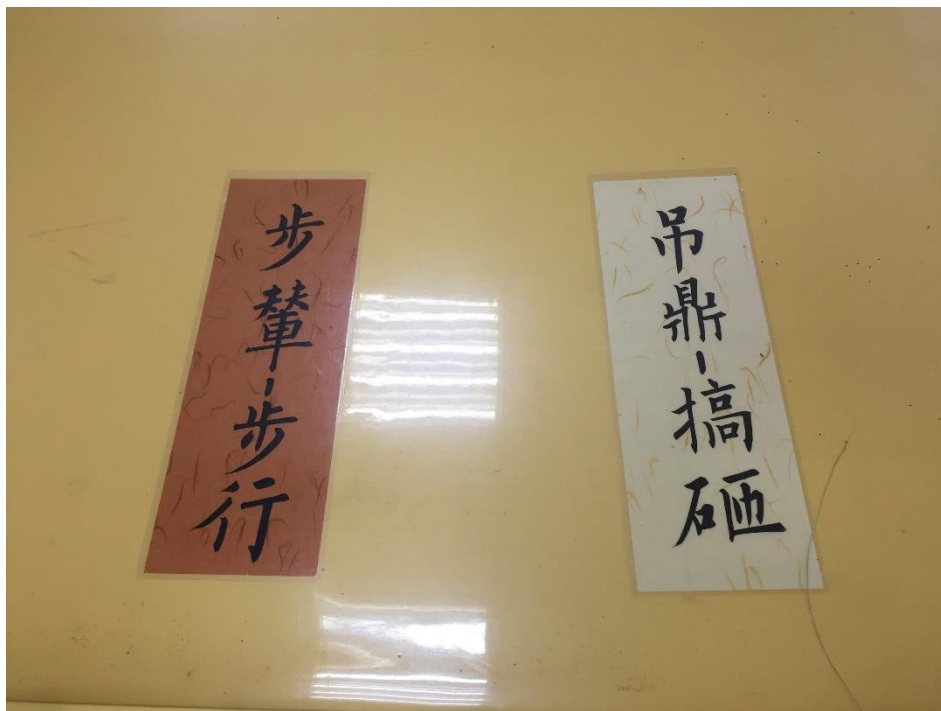 步輦-步行
吊鼎-搞砸